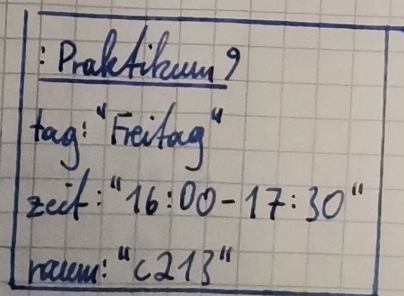 : Praktikum 9
tag: "Freitag"
zeit: "16:00-17:30"
raum: "C213"